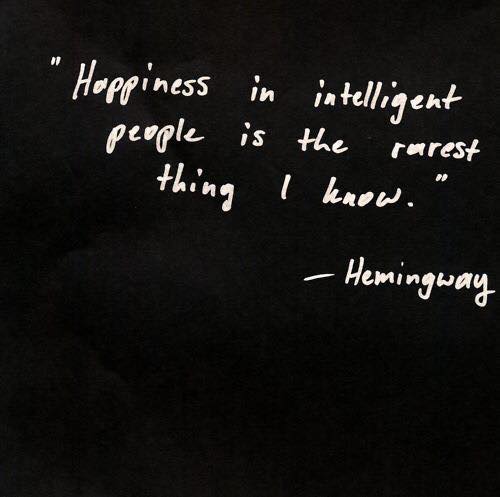 "Happiness in intelligent
people is the rarest
thing I know."
— Hemingway